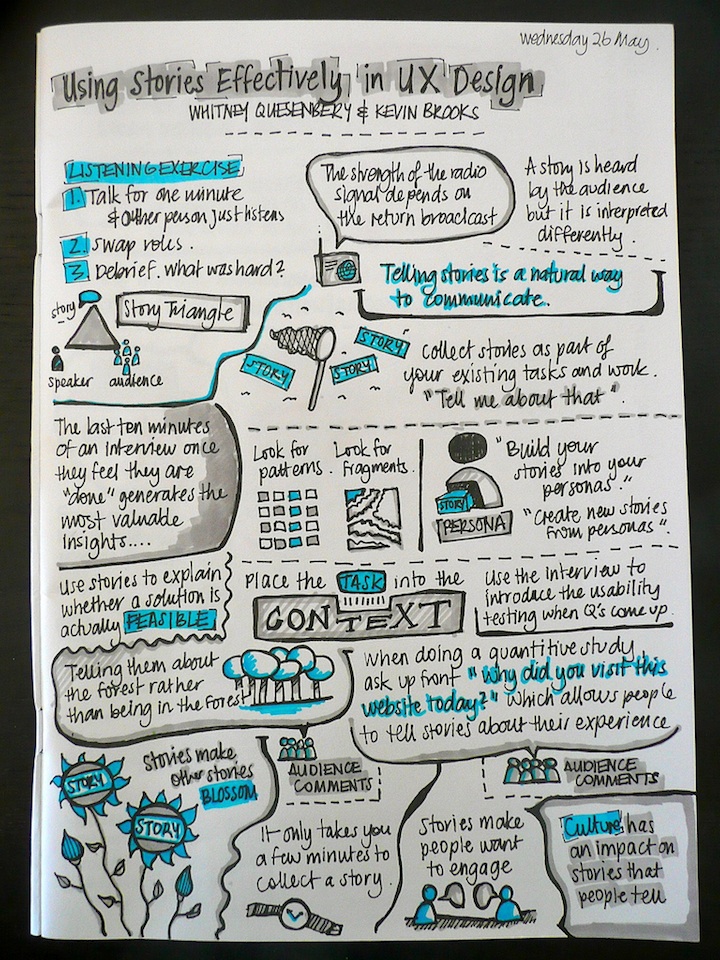 wednesday 26 May.
Using Stories Effectively in UX Design
WHITNEY QUESENBERY & KEVIN BROOKS
LISTENING EXERCISE
1. Talk for one minute
& other person just listens
2. Swap roles.
3. Debrief. What was hard?
The strength of the radio
signal depends on
the return broadcast
A story is heard
by the audience
but it is interpreted
differently.
Telling stories is a natural way
to communicate.
story
Story Triangle
speaker
audience
STORY
STORY
STORY
Collect stories as part of
your existing tasks and work.
"Tell me about that".
The last ten minutes
of an interview once
they feel they are
"done" generates the
most valuable
insights....
Look for
patterns.
Look for
fragments.
STORY
PERSONA
"Build your
stories into your
personas."
"Create new stories
from personas".
Use stories to explain
whether a solution is
actually FEASIBLE
Place the TASK into the
CONTEXT
Use the interview to
introduce the usability
testing when Q's come up.
Telling them about
the forest rather
than being in the forest
When doing a quantitive study
ask up front "Why did you visit this
website today?" which allows people
to tell stories about their experience
AUDIENCE
COMMENTS
AUDIENCE
COMMENTS
Stories make
other stories
BLOSSOM
STORY
STORY
It only takes you
a few minutes to
collect a story.
Stories make
people want
to engage
Culture has
an impact on
stories that
people tell